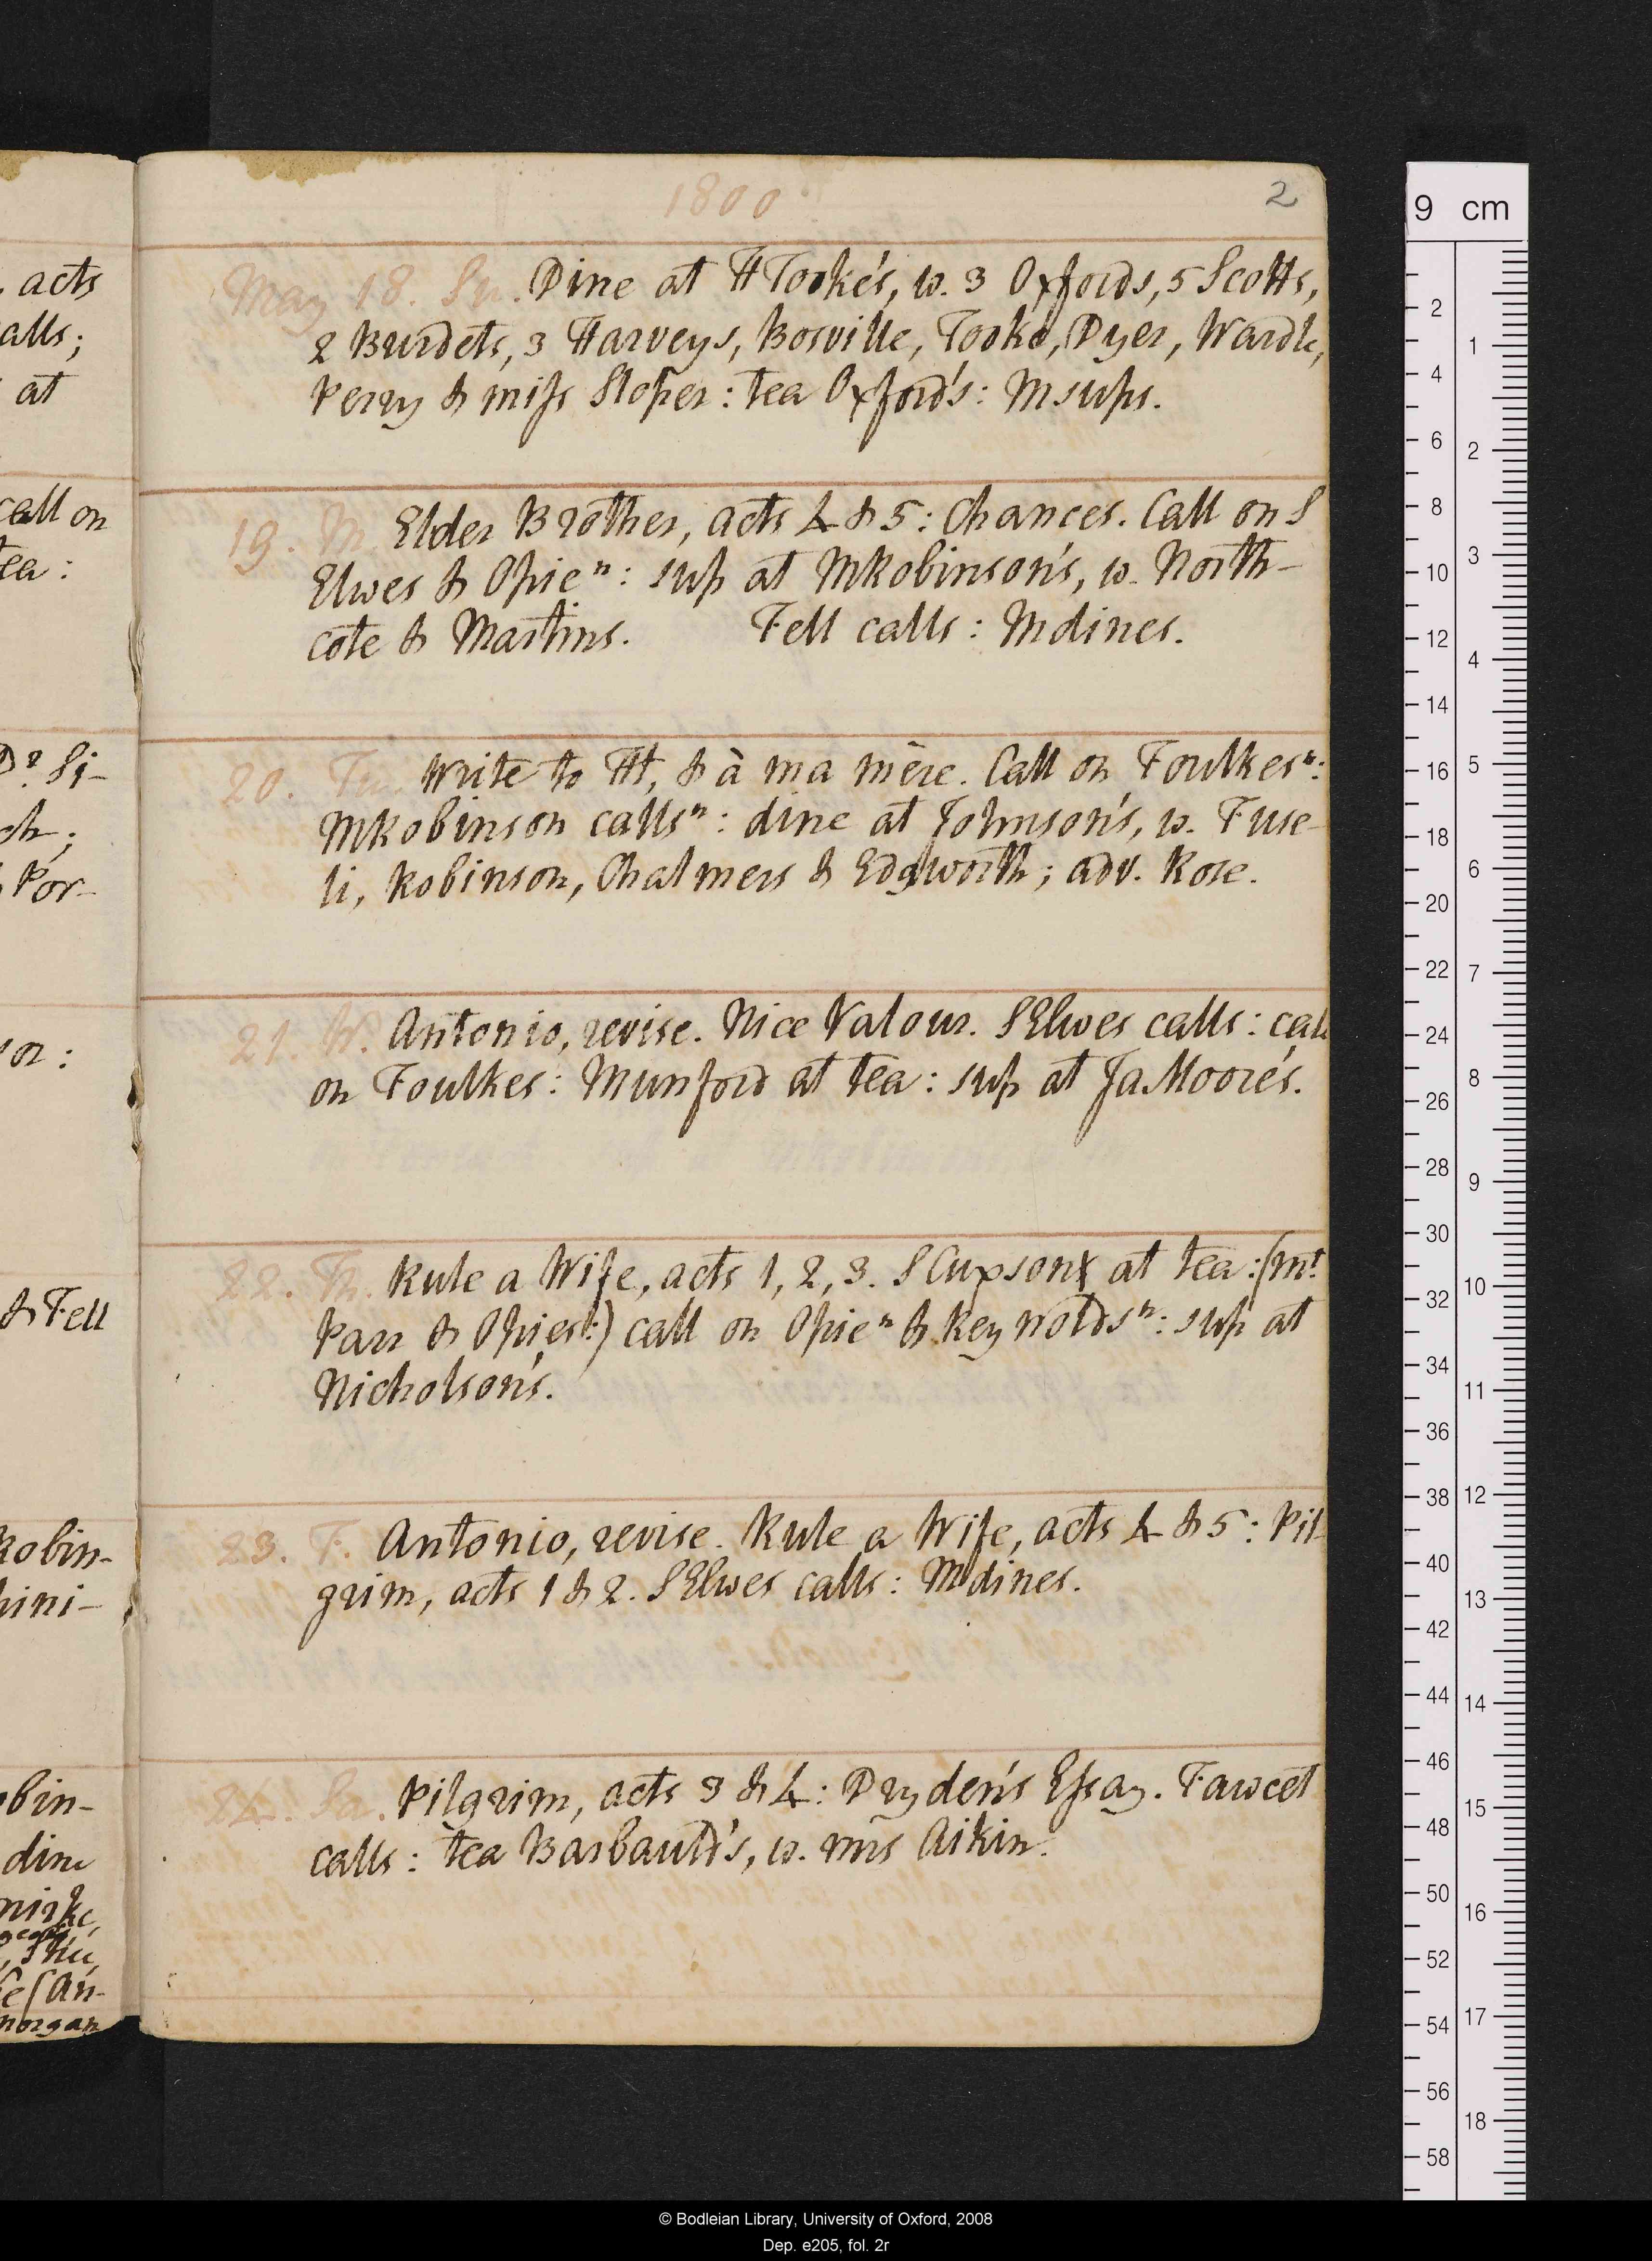 1800
2
May 18. Su. Dine at HTooke's, w. 3 Oxfords, 5 Scotts,
2 Burdets, 3 Harveys, Bosville, Tooke, Dyer, Wardle,
Perry & miss Sloper: tea Oxford's: M sups.
19. M. Elder Brother, acts 4 & 5: Chances. Call on S
Elwes & Opie n: sup at MRobinson's, w. North-
cote & Martins. Fell calls: M dines.
20. Tu. Write to Ht, & à ma mère. Call on Foulkes n:
MRobinson calls n: dine at Johnson's, w. Fuse-
li, Robinson, Chalmers & Edgworth; adv. Rose.
21. W. Antonio, revise. Nice Valour. SElwes calls: call
on Foulkes: Munford at tea: sup at JaMoore's.
22. Th. Rule a Wife, acts 1, 2, 3. S at tea: (mt
Parr & Opies:) call on Opie n & Reynolds n: sup at
Nicholson's.
23. F. Antonio, revise. Rule a Wife, acts 4 & 5: Pil-
grim, acts 1 & 2. SElwes calls: M dines.
24. Sa. Pilgrim, acts 3 & 4: Dryden's Essay. Fawcet
calls: tea Barbauld's, w. mrs Aikin.
acts
alls;
at
call on
tea:
Dr. Si-
ch;
Por-
or:
& Fell
Robin-
hini-
obin-
dine
e (An-
morgan
9 cm
2
4
6
8
10
12
14
16
18
20
22
24
26
28
30
32
34
36
38
40
42
44
46
48
50
52
54
56
58
1
2
3
4
5
6
7
8
9
10
11
12
13
14
15
16
17
18
© Bodleian Library, University of Oxford, 2008
Dep. e205, fol. 2r